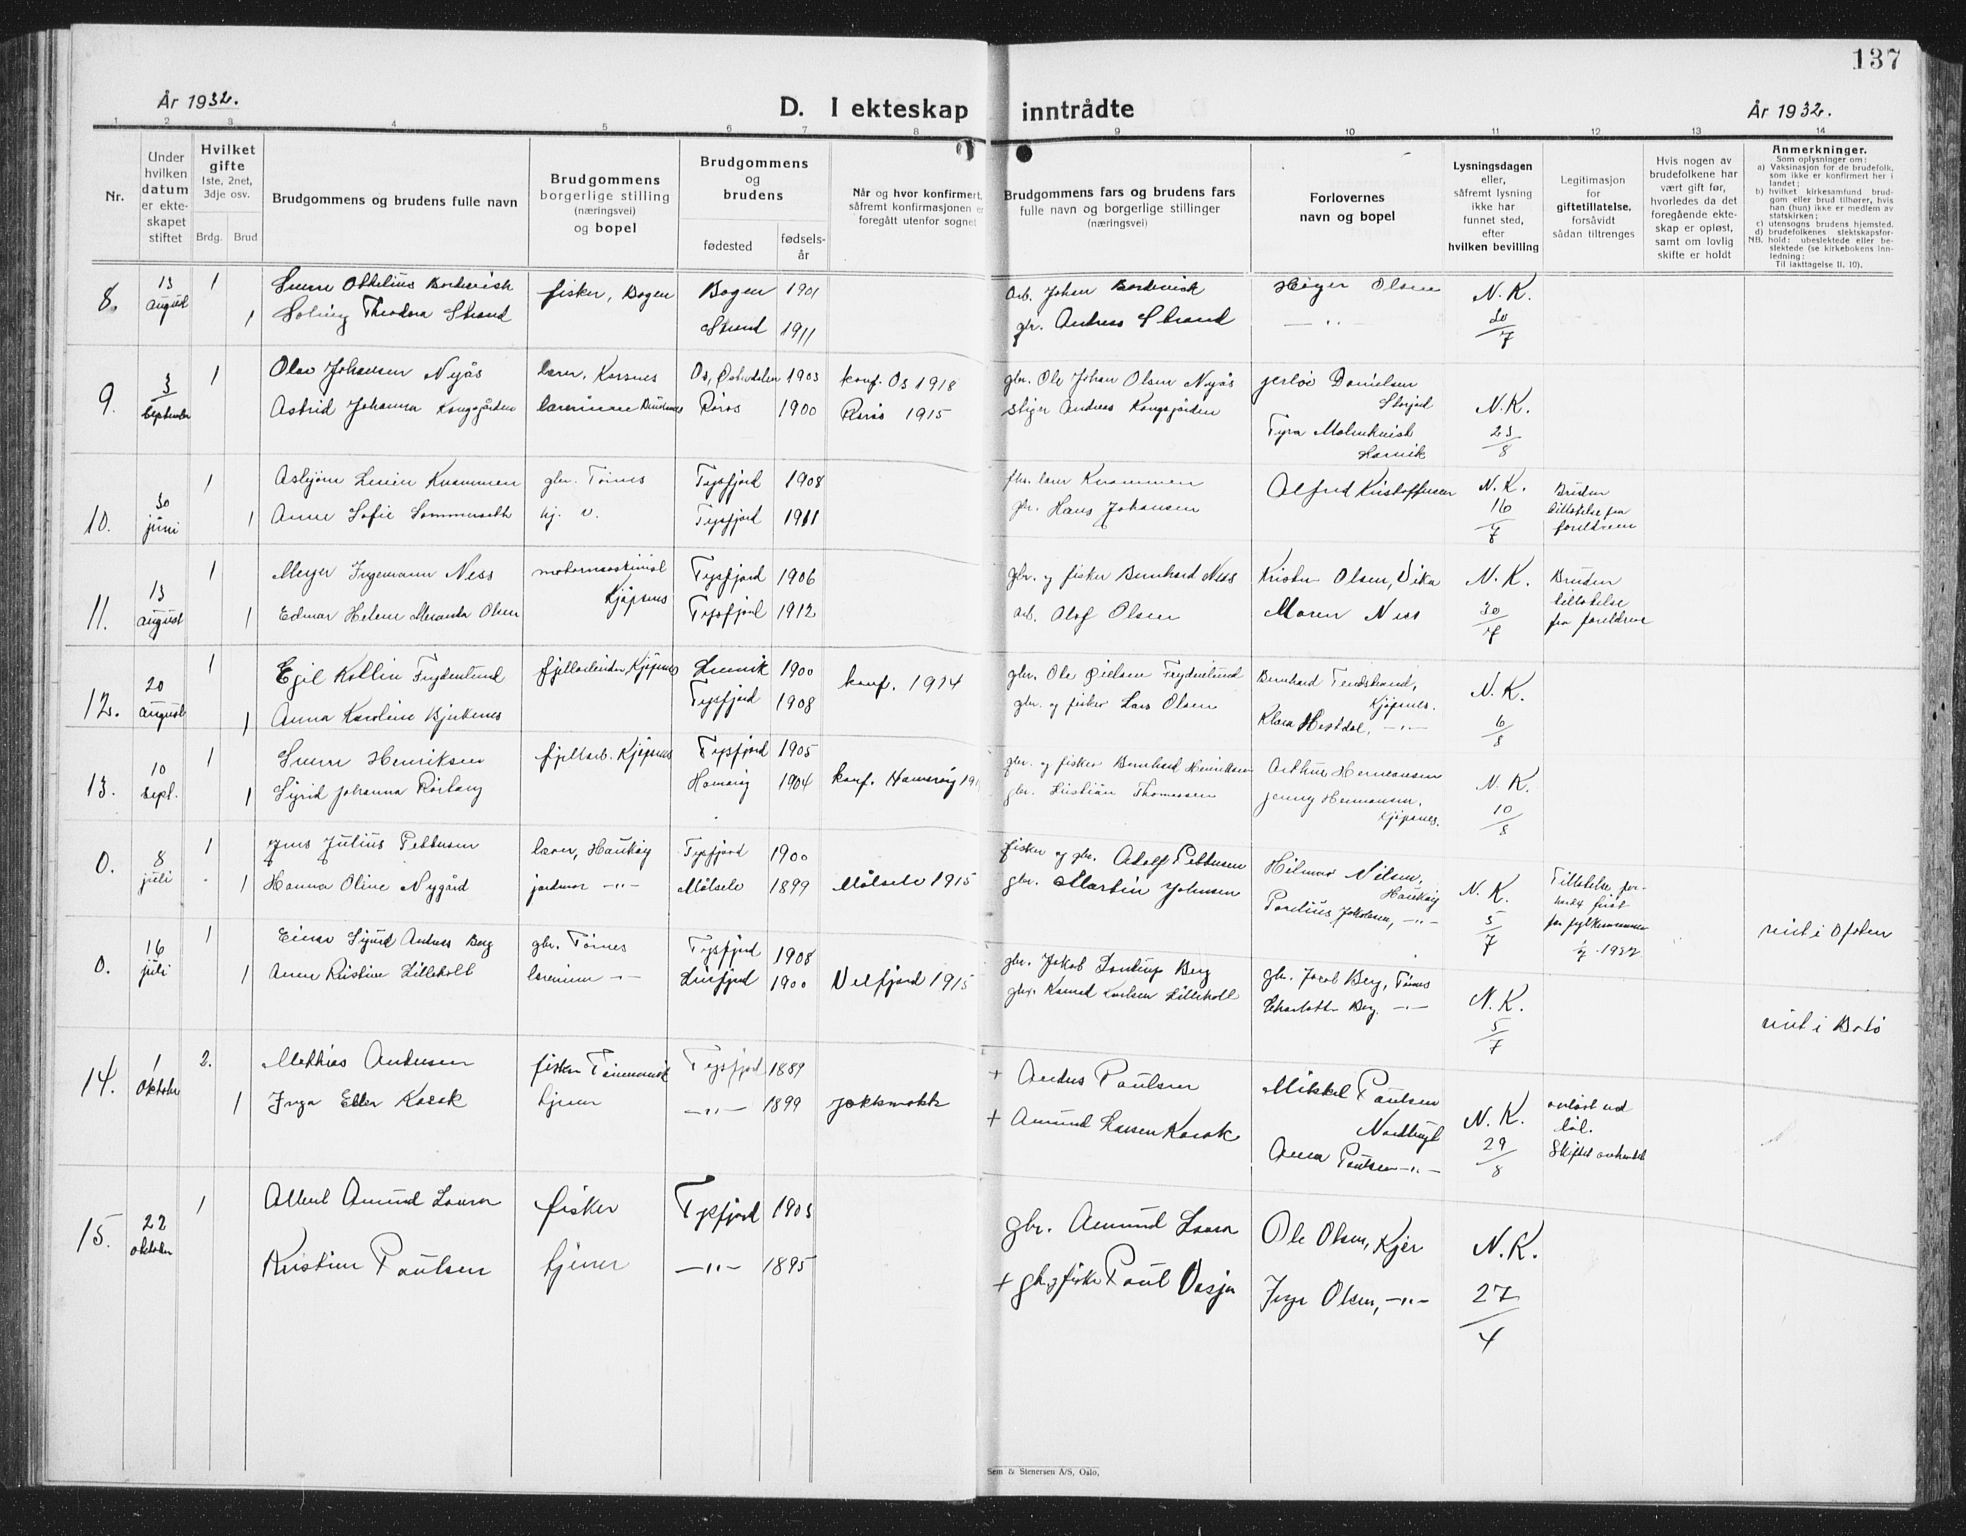 137
År 1932.
D. I ekteskap inntrådte
År 1932.
1 2 3 4 5 6 7 8 9 10 11 12 13 14
Nr.
Under hvilken datum er ekteskapet stiftet
Hvilket gifte
1ste, 2net, 3dje osv.
Brdg. Brud
Brudgommens og brudens fulle navn
Brudgommens borgerlige stilling (næringsvei) og bopel
Brudgommens og brudens
fødested
fødselsår
Når og hvor konfirmert,
såfremt konfirmasjonen er
foregått utenfor sognet
Brudgommens fars og brudens fars
fulle navn og borgerlige stillinger
(næringsvei)
Forlovernes
navn og bopel
Lysningsdagen
eller,
såfremt lysning
ikke har
funnet sted,
efter
hvilken bevilling
Legitimasjon
for
giftetillatelse,
forsåvidt
sådan tiltrenges
Hvis nogen av
brudefolkene har
vært gift før,
hvorledes da det
foregående ekteskap er opløst,
samt om lovlig
skifte er holdt
Anmerkninger.
Som oplysninger om:
a) Vaksinasjon for de brudefolk, som ikke er konfirmert her i landet;
b) hvilket kirkesamfund brudgom eller brud tilhører, hvis han (hun) ikke er medlem av statskirken;
c) utensogns brudens hjemsted.
d) brudefolkenes slektskapsforhold: ubeslektede eller beslektede (se kirkebokens innledning:
NB. Til iakttagelse II. 10).
8. 13 august 1 fisker, Bogen Bogen 1901 arb. Johan Holger Olsen N.K.
1 Solveig Theodora Strand Strand 1911 gbr. Andreas Strand — " — 30/7
9. 3 September 1 Olav Johansen Nyås lærer, Korsnes Os, Østerdalen 1903 konf. Os 1918 gbr. Ole Johan Olsen Nyås Danielsen Storjord N.K.
Astrid Johanna Kongsgården lærerinne Røros 1900 Røros 1915 stiger Andreas Kongsgården 23/8
10. 30 juni 1 Asbjørn Kvammen gbr. Tømnes Tysfjord 1908 Kvammen Alfred Kristoffersen N.K. Bruden
1 Anne Sofie Sommerseth hj. v. Tysfjord 1911 gbr. Hans Johansen 16/7 tillatelse fra foreldrene
11. 13 august 1 Meyer Ingemann Ness Kjøpsnes Tysfjord 1906 gbr. og fisker Bernhard Ness Olsen, Vika N.K. Bruden
1 Helene Olsen Tysfjord 1912 arb. Olof Olsen Maren Ness 30/7 tillatelse fra foreldrene
12. 20 august 1 Egil Kollin Frydenlund fjellarbeider Kjøpsnes 1900 konf. 1914 gbr. Ole Frydenlund Bernhard Kjøpsnes. N.K.
1 Anna Karoline Bjerkenes Tysfjord 1908 gbr. og fisker Lars Olsen Klara Hestdal, — " — 6/8
13. 10 sept. 1 Henriksen fjellarb. Kjøpsnes Tysfjord 1905 gbr. og fisker Bernhard Henriksen Arthur Hermansen N.K.
1 Sigrid Johanna Rørtang Hamarøy 1904 konf. Hamarøy gbr. Kristian Thomassen Jenny Hermansen, Kjøpsnes. 10/8
0. 8 juli 1 Jens Julius Pettersen lærer, Haukøy Tysfjord 1900 fisker og gbr. Adolf Pettersen Hilmar Nilsen, Haukøy N.K.
1 Hanna Oline Nygård jordmor — " — Målselv 1899 Målselv 1915 gbr. Martin Johnsen Jakobsen, — " — 5/7 viet i Ofoten
0. 16 juli 1 Einar Sigurd Andreas Berg gbr. Tømnes Tysfjord 1908 gbr. Jakob Berg gbr. Jacob Berg, Tømnes N.K.
1 Kristine Lilleholt 1900 Velfjord 1915 gbr. Karlsen Lilleholt Charlotte Berg — " — 5/7 viet i Bodø
14. 1 Oktober 2. Mathias Andersen fisker Tysfjord 1889 + Anders Paulsen Mikkel Paulsen N.K.
1 Inga Ellen Kosok tjener — " — 1899 Jokkmokk + Amund Larsen Kosok Anna Paulsen — " — 29/8
15. 22 oktober 1 Albert Amund fisker Tysfjord 1903 gbr. Amund Ole Olsen, Kjer N.K.
Kristine Paulsen tjener — " — 1895 + gbr. og fisker Paul Inga Olsen, — " — 27/4
Sem & Stenersen A/S, Oslo.